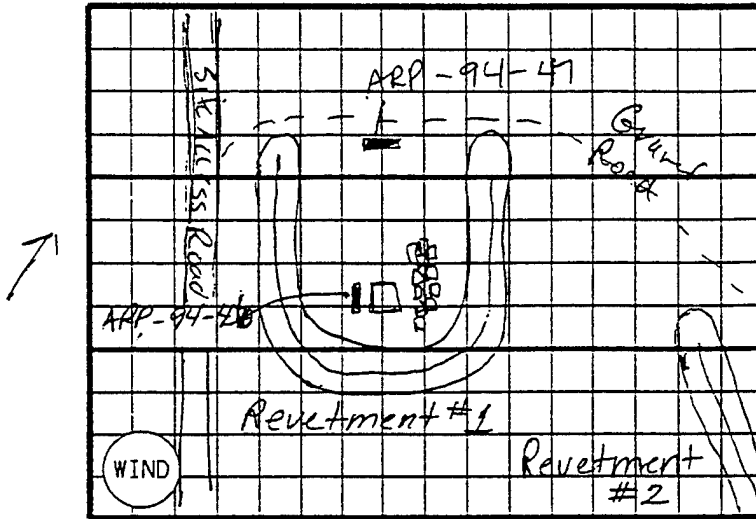 ARP-94-47
Site Access Road
Gravel
Road
ARP-94-46
Revetment #1
WIND
Revetment
#2